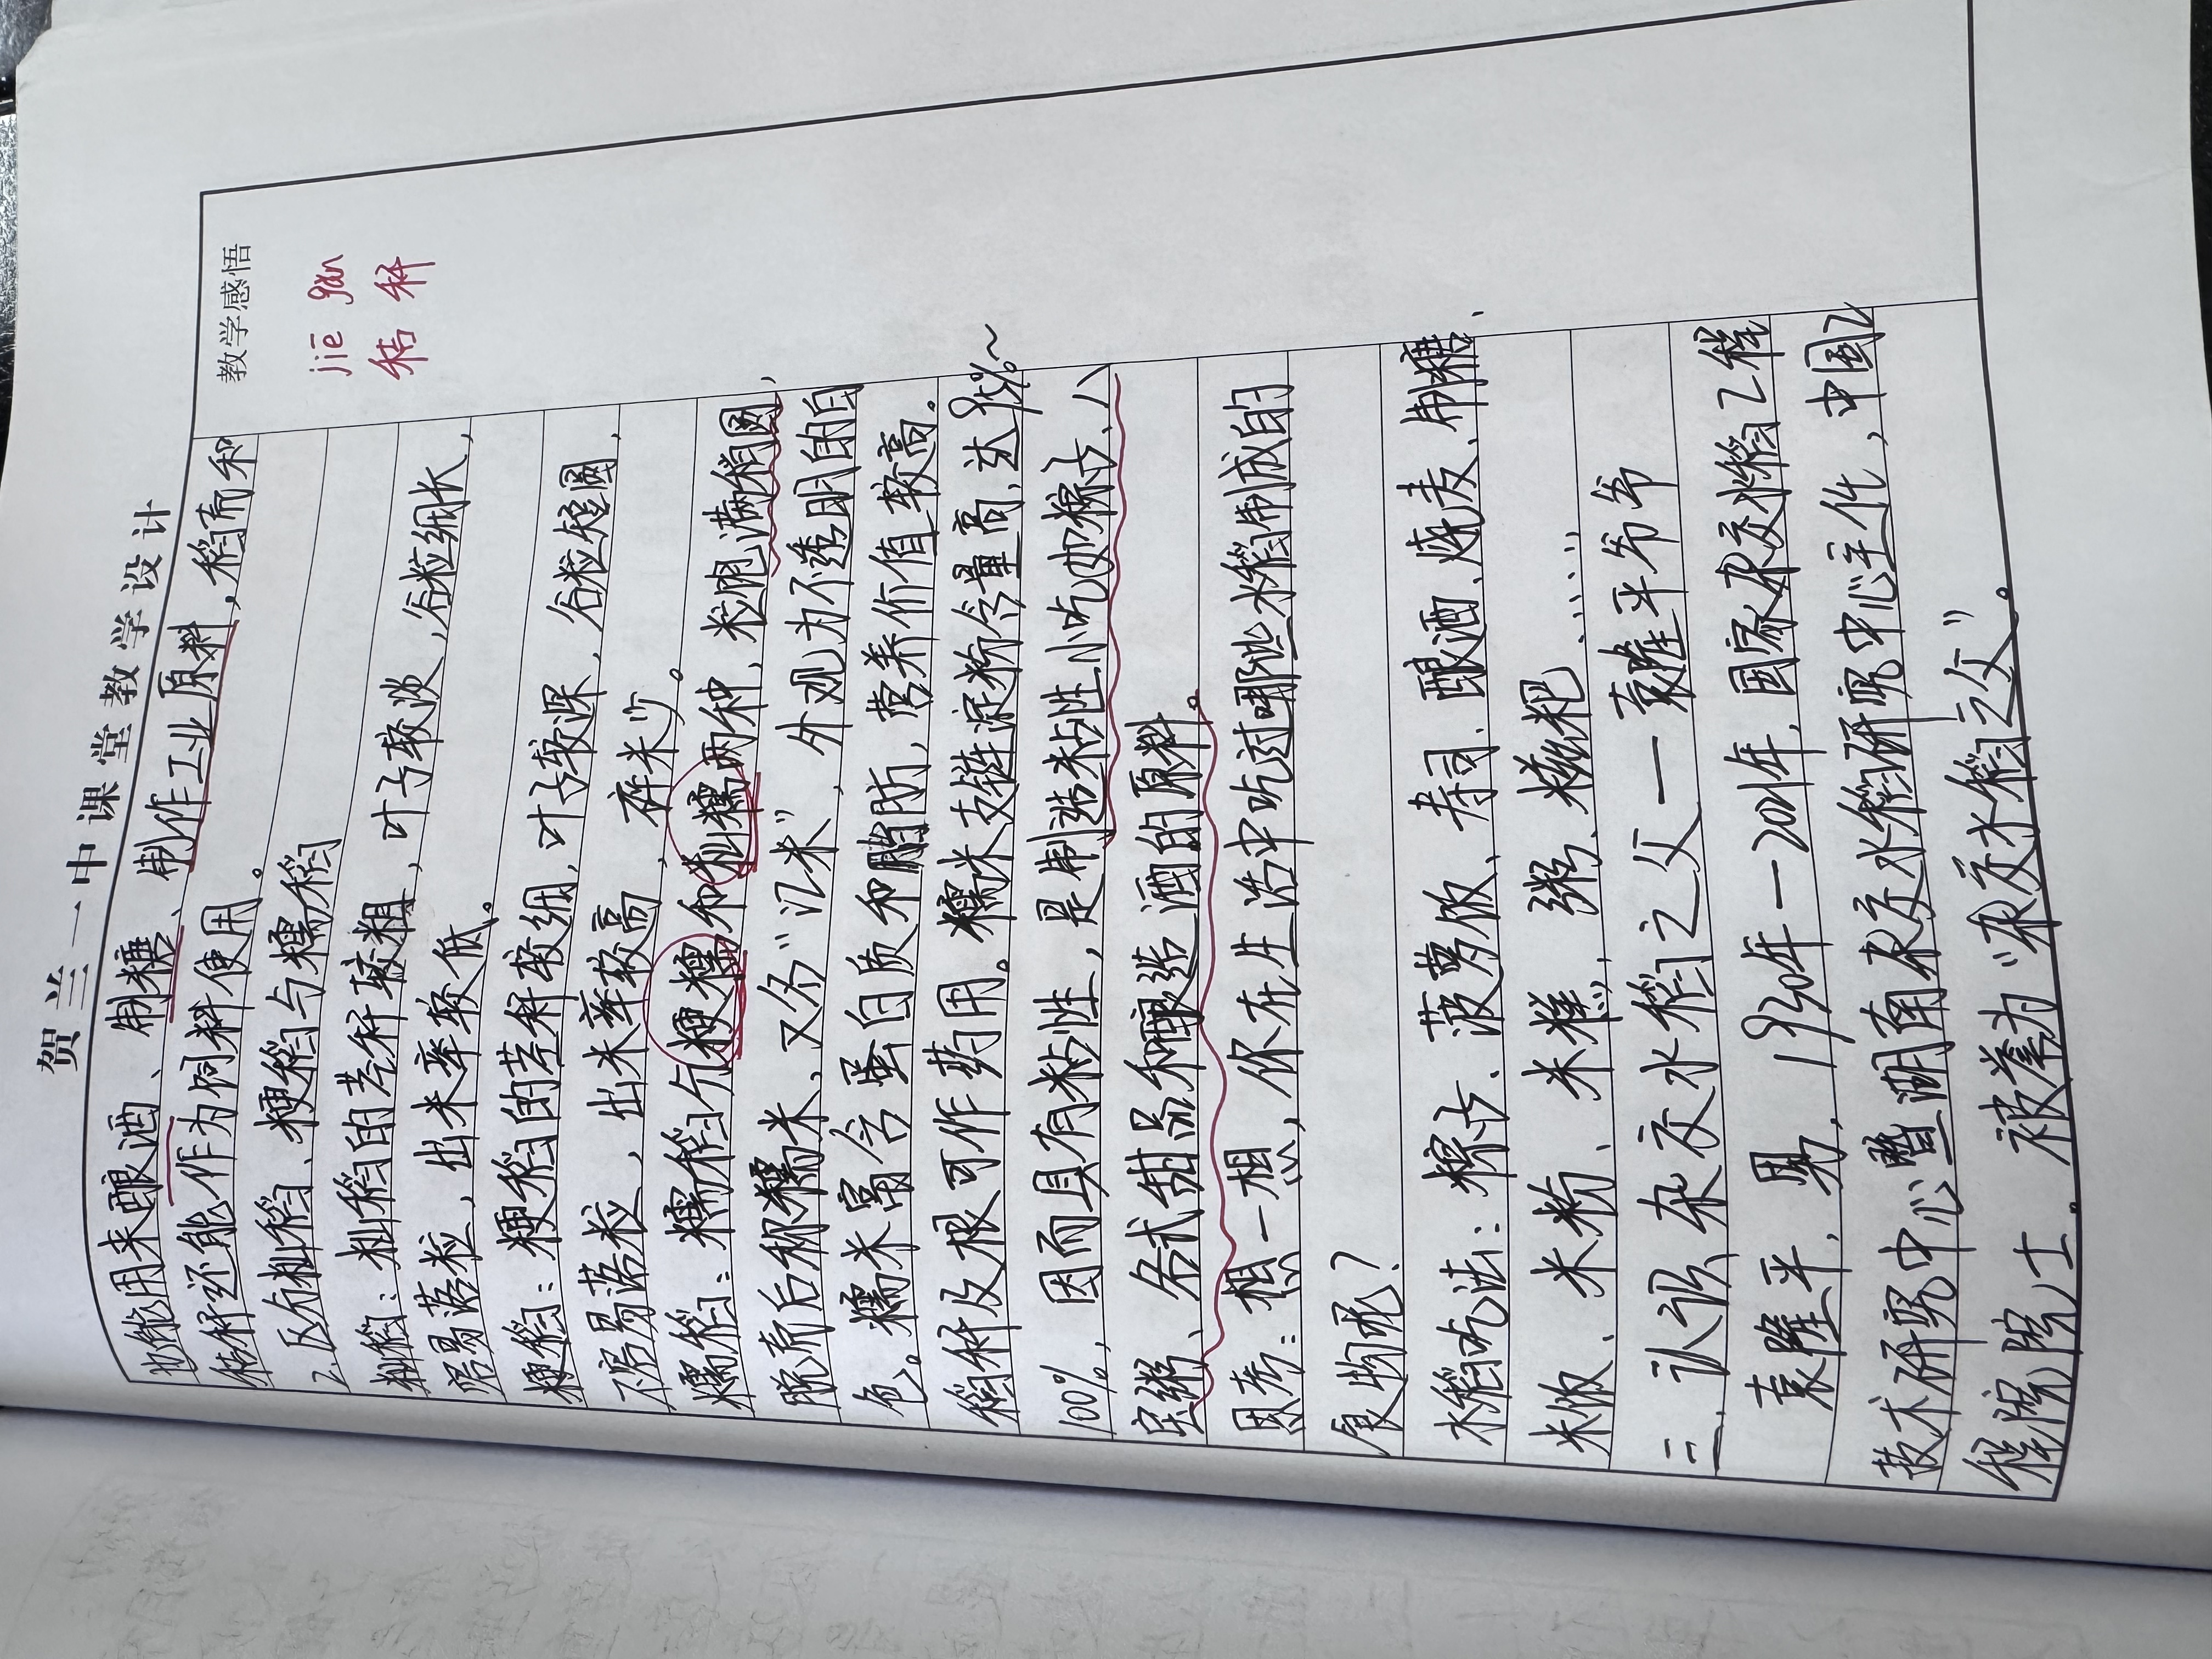 贺兰一中课堂教学设计
教学感悟
jiē gǎn
秸秆
地能用来酿酒、制糖、制作工业原料，稻壳和
秸秆还能作为饲料使用。
2.区分籼稻、粳稻与糯稻
籼稻：籼稻的茎秆较粗，叶子较淡，谷粒细长，
容易落粒，出米率较低。
粳稻：粳稻的茎秆较细，叶子较深，谷粒短圆，
不容易落粒，出米率较高，碎米少。
糯稻：糯稻分粳糯和籼糯两种，粒饱满稍圆，
脱壳后称糯米，又名“江米”，外观为不透明的白
色。糯米富含蛋白质和脂肪，营养价值较高。
稻秆及根可作药用。糯米支链淀粉含量高，达95%~
100%，因而具有粘性，是制造粘性小吃如粽子、八
宝粥、各式甜品和酿造酒的原料。
思考：想一想，你在生活中吃过哪些水稻制成的
食物呢？
水稻吃法：粽子、菠萝饭、寿司、酿酒、烧麦、制糖、
米饭、米粉、米糕、粥、糍粑……
三、认识杂交水稻之父—袁隆平爷爷
袁隆平，男，1930年—2021年，国家杂交水稻工程
技术研究中心暨湖南杂交水稻研究中心主任，中国工
程院院士。被誉为“杂交水稻之父”。